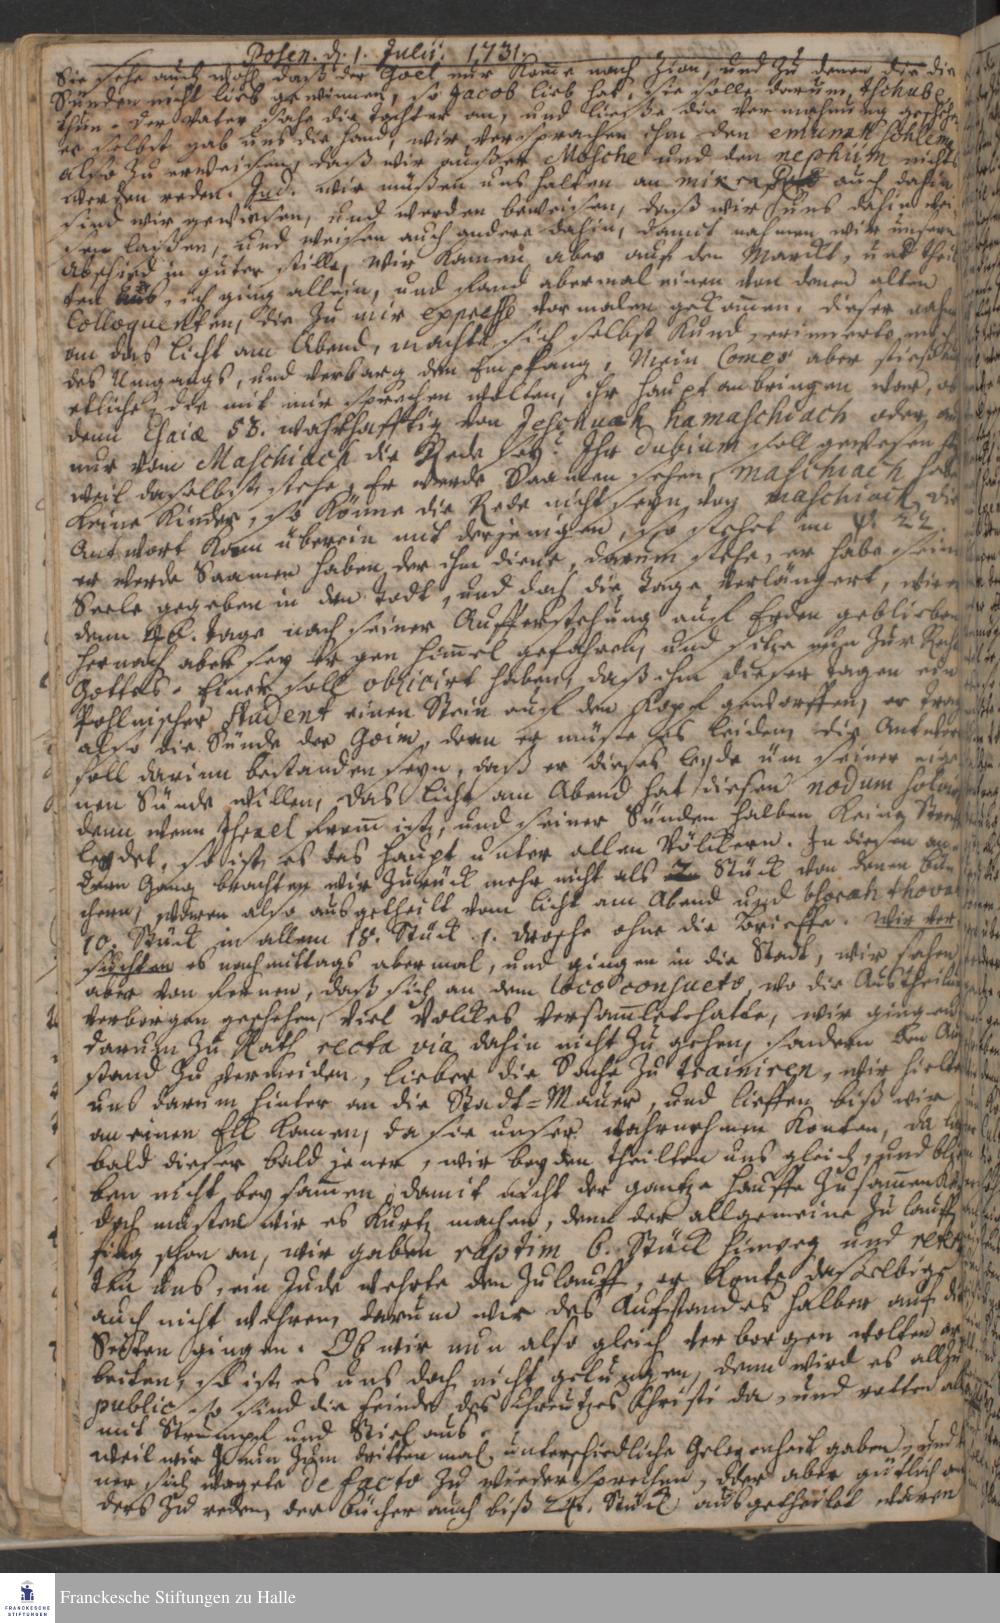 Posen. d. 1. Julii. 1731.
Sie sehe auch wohl daß der Goel nur komme nach Zion, und zu denen die die
Sünden nicht lieb gewinnen, so Jacob lieb hat, sie solle darum tschube
thun. Der Vater sahe die Tochter an, und ließe die Vermahnung geschehen
er selbst gab uns die Hand, wir versprachen ihm den emunah schlema
also zu erweisen, daß wir außer Mosche und den nephiim nichts
werden reden. Jud. wir müßen uns halten an mikra auch dahin
sind wir gewiesen, und werden beweisen, daß wir uns dahin wei-
sen laßen, und weisen auch andere dahin, damit nahmen wir unsern
Abschied in guter stille, wir kamen aber auf den Marckt, und theil
ten uns, ich ging allein, und fand abermal einen von denen alten
Colloquenten, die zu mir expresse vormalen gekommen. dieser nahm
an das licht am Abend, machte sich selbst kund, erinnerte mich
des Umgangs, und verbarg den Empfang, Mein Comes aber stieß
etliche die mit mir sprechen wolten, ihr Haupt anbringen war, ob
denn Esaiæ 53. wahrhafftig von Jeschuah hamaschiach oder
nur vom Maschiach die Rede sey? Ihr dubium soll gewesen
weil daselbst stehe, Er werde Saamen sehen, maschiach habe
keine Kinder, so könne die Rede nicht seyn von maschiach, die
Antwort kam überein mit derjenigen, so stehet im Ψ. 22.
er werde Saamen haben der ihm diene, darum stehe, er habe sein
Seele gegeben in den Todt, und daß die Tage verlängert, wie
denn 40. Tage nach seiner Aufferstehung auf Erden geblieben
hernach aber sey er gen Himmel gefahren, und sitze nun zur Rech
Gottes. Einer soll obiicirt haben, daß ihm dieser Tagen ein
Pohlnischer Student einen Stein auf den Kopf geworffen, er trage
also die Sünde der Goim, denn er müste es leiden, die Antwort
soll darinn bestanden seyn, daß er dieses leyde um seiner eige
nen Sünde willen, das licht am Abend hat diesen nodum
denn wenn Ißrael fromm ist, und seiner Sünden halben keine Straffe
leydet, so ist es das Haupt unter allen Völckern. In diesen an-
dern Gang brachten wir zurück mehr nicht als 2 Stück von denen Bü-
chern, waren also ausgetheilt vom licht am Abend und thorah thova
10. Stück in allem 18. Stück 1. drosche ohne die Brieffe. Wir ver
suchten es nachmittags abermal, und gingen in die Stadt, wir sahen
aber von fernen, daß sich an dem loco consueto, wo die Austheilung
verborgen geschehen, viel Volckes versammlet hatte, wir gingen
darum zu Rath recta via dahin nicht zu gehen, sondern den Auf
stand zu vermeiden, lieber die Sache zu trainiren, wir hielten
uns darum hinter an die Stadt=Mauer, und lieffen biß wir
an einen Ell kamen, da sie unser wahrnehmen konten, da
bald dieser bald jener, wir beyden theilten uns gleich, und blie
ben nicht beysamen, damit nicht der gantze Hauffe zusammen
doch musten wir es kurtz machen, denn der allgemeine Zulauff
fing schon an, wir gaben raptim 6. Stück hinweg und
ten uns, ein Jude wehrte dem Zulauff, er konte daßelbige
auch nicht wehren, darum wir des Aufstandes halber auf die
Seiten gingen. Ob wir nun also gleich verborgen wolten ar
beiten, so ist es uns doch nicht gelungen, denn wird es allzu
public, so sind die Feinde des Creutzes Christi da, und rotten
mit Strumpf und Stiel aus.
Weil wir nun zum dritten mal unterschiedliche Gelegenheit gaben, und
ner sich wagete de facto zu wiedersprechen, oder aber gütlich
ders zu reden, der Bücher auch biß 24. Stück ausgetheilet waren
Franckesche Stiftungen zu Halle
FRANCKESCHE
STIFTUNGEN